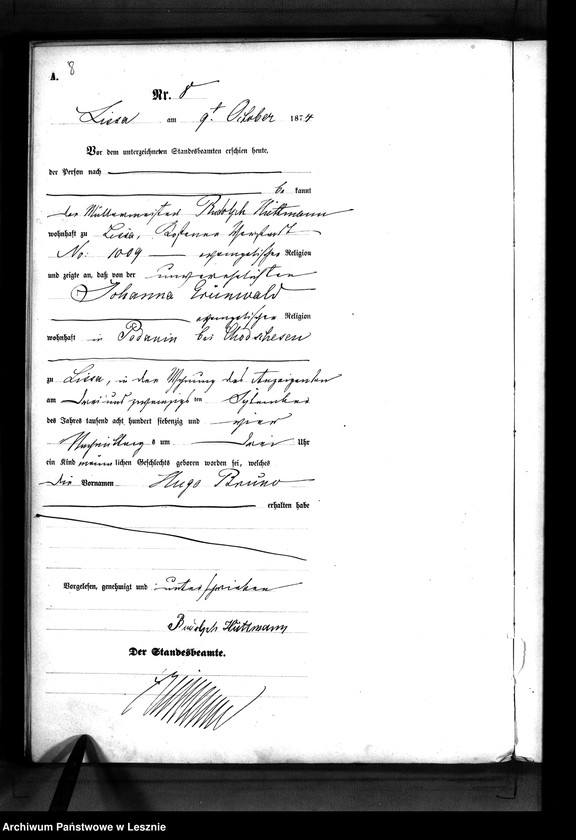 A. 8
Nr. 8
Lissa am 9t October 1874
Vor dem unterzeichneten Standesbeamten erschien heute,
der Person nach
be kannt
der Müllermeister Rudolph Hüttmann
wohnhaft zu Lissa, Kostener Vorstadt
No: 1009 evangelischer Religion
und zeigte an, daß von der unverehelichten
Johanna Grünwald
evangelischer Religion
wohnhaft in Podanin bei Chodschesen
zu Lissa, in der Wohnung des Anzeigenden
am drei und zwanzigs ten September
des Jahres tausend acht hundert siebenzig und vier
Nachmittag s um drei Uhr
ein Kind männlichen Geschlechts geboren worden sei, welches
die Vornamen Hugo Bruno
erhalten habe
Vorgelesen, genehmigt und unterschrieben
Rudolph Hüttmann
Der Standesbeamte.
Archiwum Państwowe w Lesznie